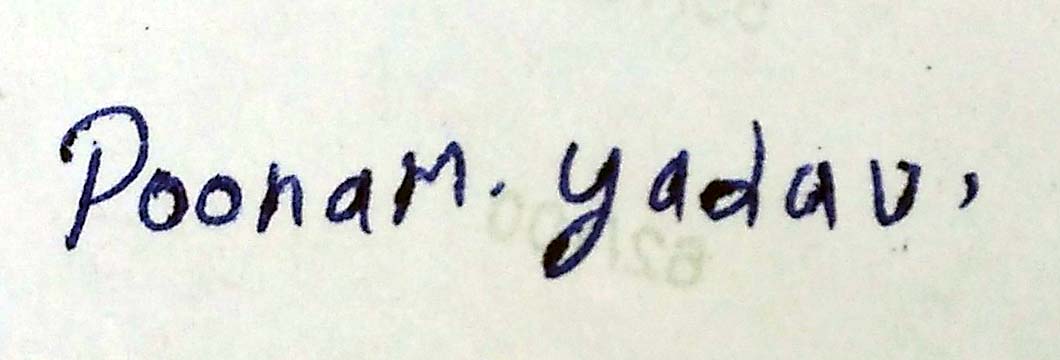 Poonam. yadav,